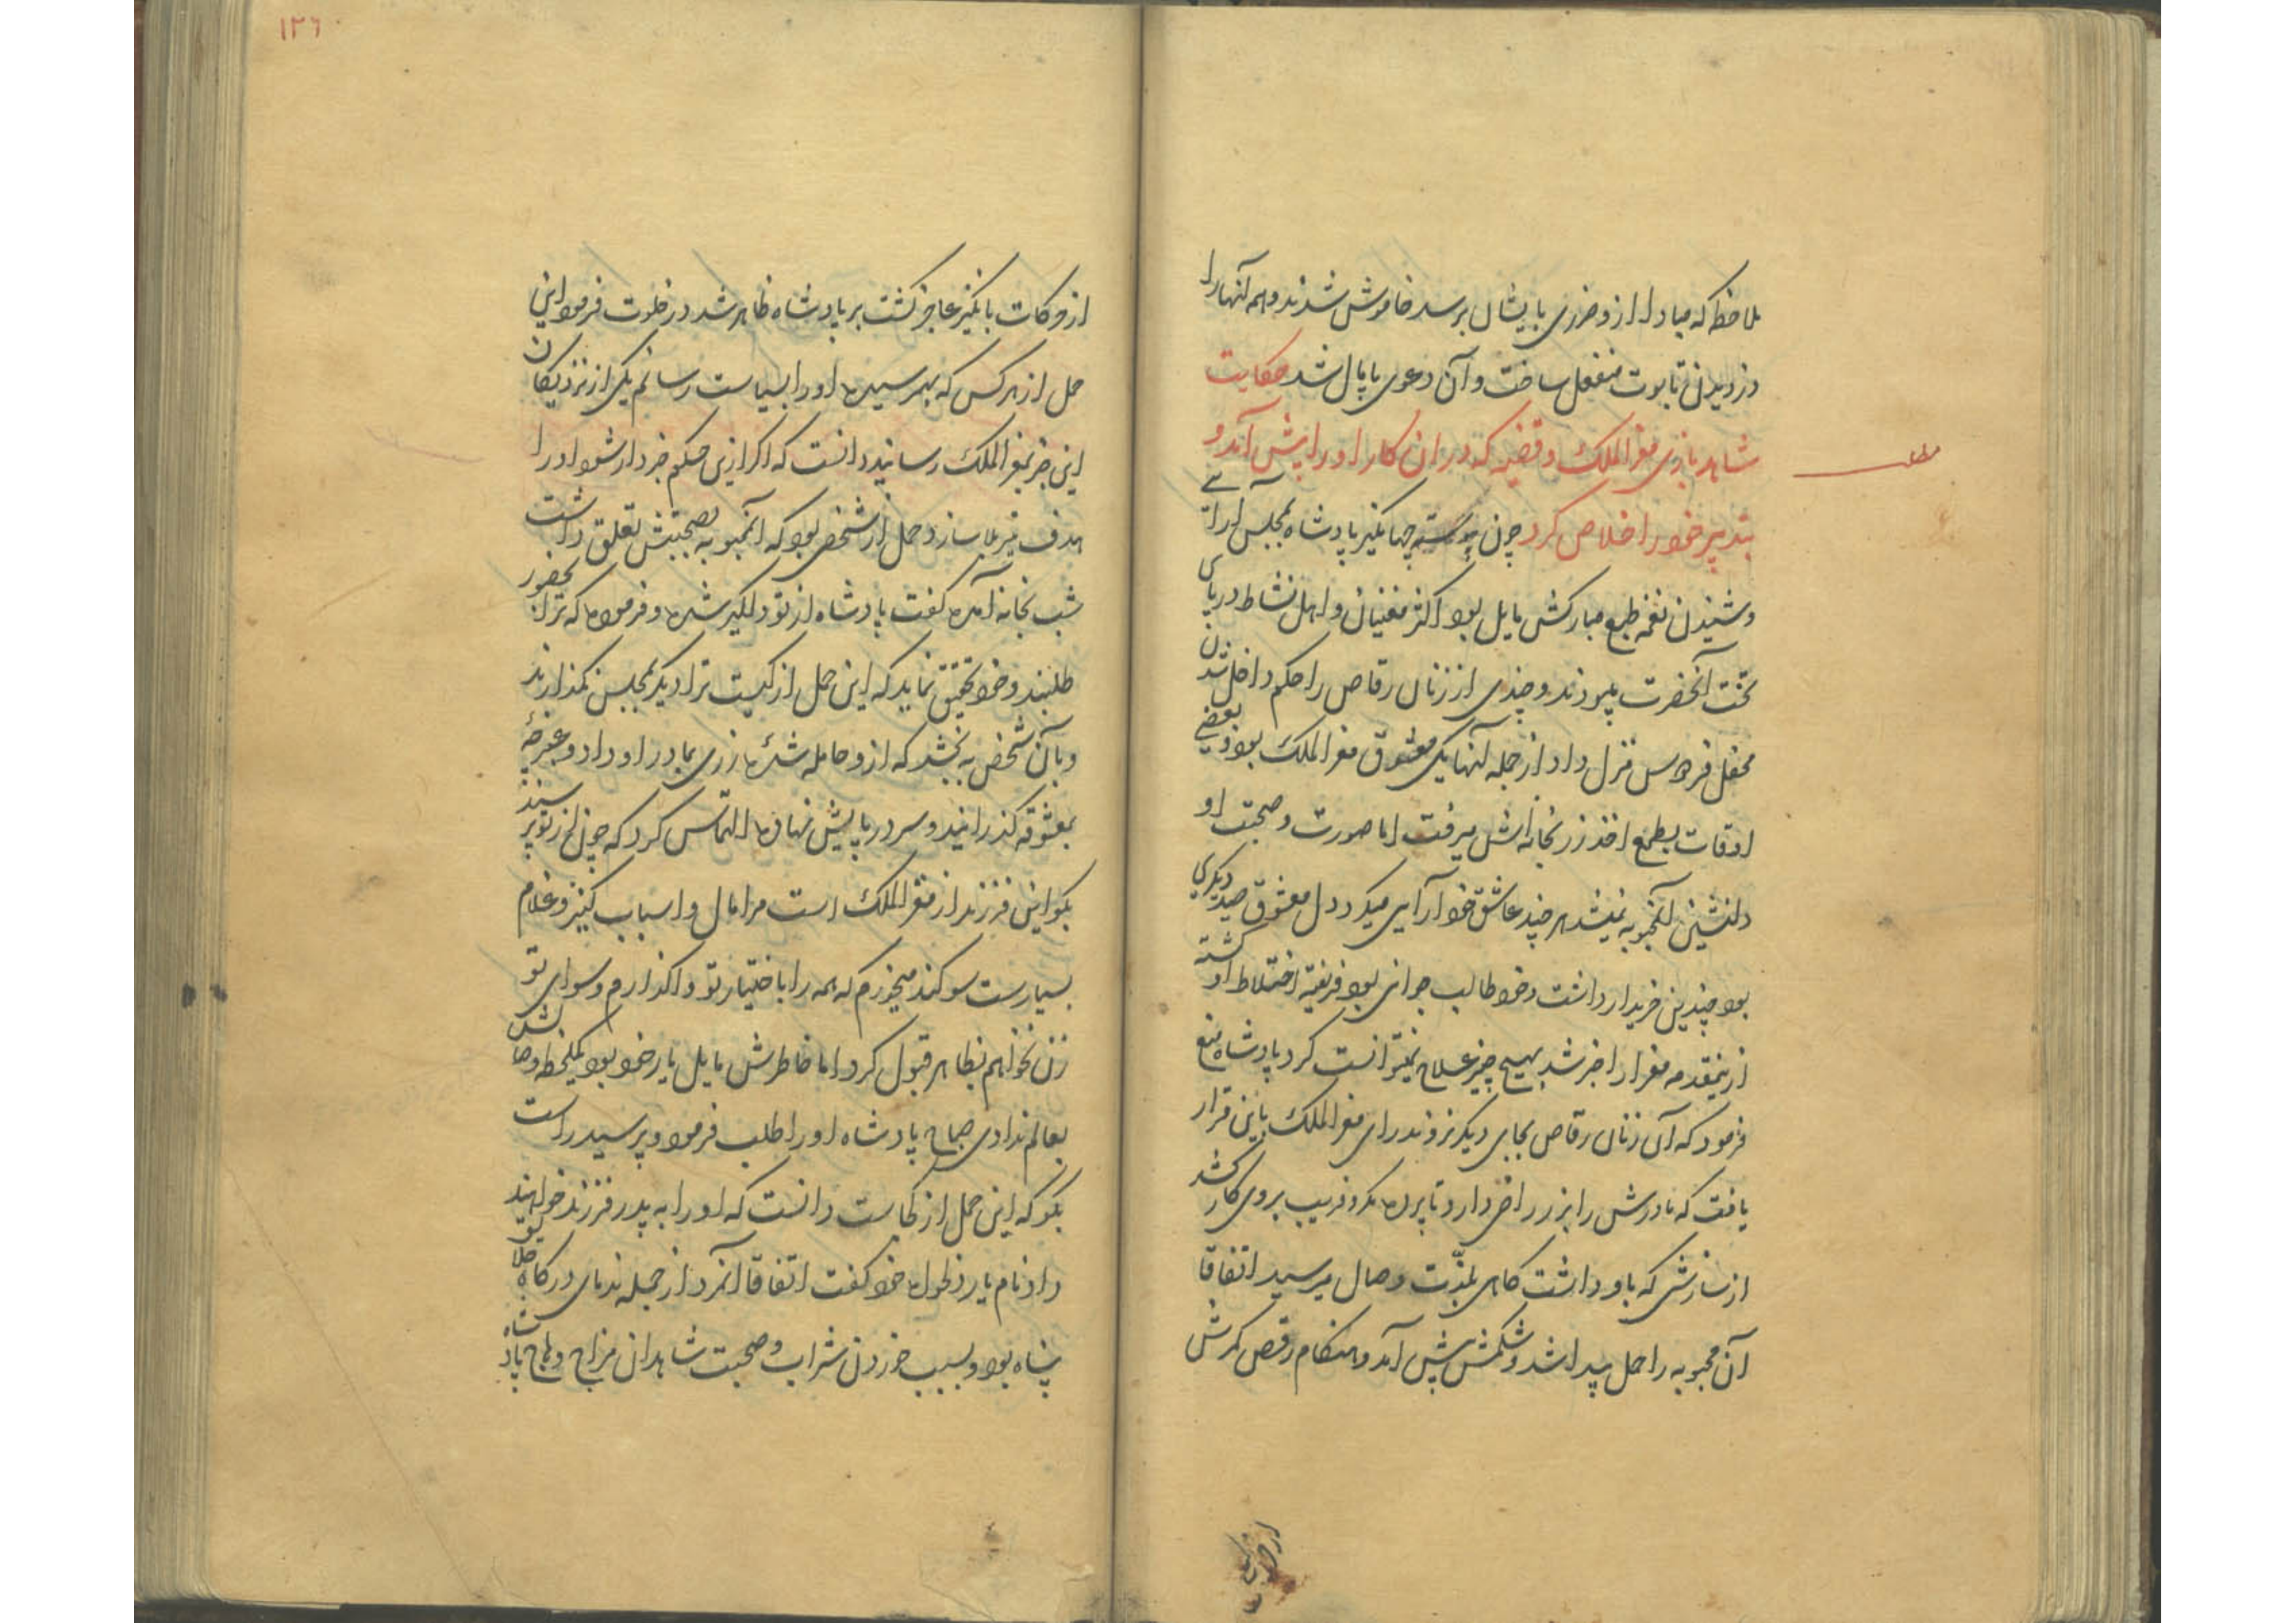 ملاحظه که مبادا ازو ضرری بایشان برسد خاموش شدند و همه آنها را
دزدیدن تابوت منفعل ساخت و آن دعوی پایمال شد حکایت
شاهد بازی مفرالملک و قضیه که در ان کار او را پیش آمد و
مطلب
بتدبیر خود را خلاص کرد چون پیوسته جهانگیر پادشاه بمجلس آرائی
و شنیدن نغمه طبع مبارکش مایل بود اکثر مغنیان و اهل نشاط در پای
تخت آنحضرت میبودند و چندی از زنان رقاص را حکم داخل شدن
محفل فردوس منزل داد از جمله آنها یکی معشوق مفرالملک بود و بعضی
اوقات بطمع اخذ زر بخانه اش میرفت اما صورت و صحبت او
دلنشین آنمحبوبه نمیشد هر چند عاشق خود آرایی میکرد دل معشوق صید دیگری
بود چندین خریدار داشت و خود طالب جوانی بود فریفته اختلاط او گشته
ازینمقدمه مفرا را خبر شد بهیچ چیز علاج نمیتوانست کرد پادشاه منع
فرمود که آن زنان رقاص بجای دیگر نروند رای مفرالملک باین قرار
یافت که مادرش را بزر راضی دارد تا پرده مکر و فریب بروی کار کشد
از سازشی که باو داشت گاهی بلذّت وصال میرسید اتفاقا
آن محبوبه را حمل پیدا شد و شکمش پیش آمد و هنگام رقص کمرش
از حرکات
۱۲٦
از حرکات بانگیز عاجز گشت بر پادشاه ظاهر شد در خلوت فرمود این
حمل از هر کس که بهمرسیده او را بسیاست رسانم یکی از نزدیکان
این خبر بمفرالملک رسانید دانست که اگر ازین حکم خبردار شود او را
هدف تیر بلا سازد حمل از شخصی بود که آنمحبوبه بصحبتش تعلق داشت
شب بخانه آمده گفت پادشاه از تو دلگیر شده و فرموده که ترا بحضور
طلبند و خود تحقیق نماید که این حمل از کیست ترا دیگر بمجلس نگذارند
و بآن شخص به بخشد که ازو حامله شدهٔ زری بمادر او داد و عنبرچهٔ
بمعشوقه گذرانید و سر در پایش نهاده التماس کرد که چون از تو پرسند
بگو این فرزند از مفرالملک است مرا مال و اسباب کنیز و غلام
بسیارست سوگند میخورم که همه را باختیار تو واگذارم و سوای تو
زن نخواهم بظاهر قبول کرد اما خاطرش مایل یار خود بود یکلحظه وصالش
بعالم ندادی صباح پادشاه او را طلب فرمود و پرسید راست
بگو که این حمل از کجاست دانست که او را به پدر فرزند خواهند
داد نام یار دلخواه خود گفت اتفاقا آنمرد از جمله ندمای درگاه خلایق
پناه بود و بسبب خوردن شراب و صحبت شاهدان مزاج وهاج پادشاه